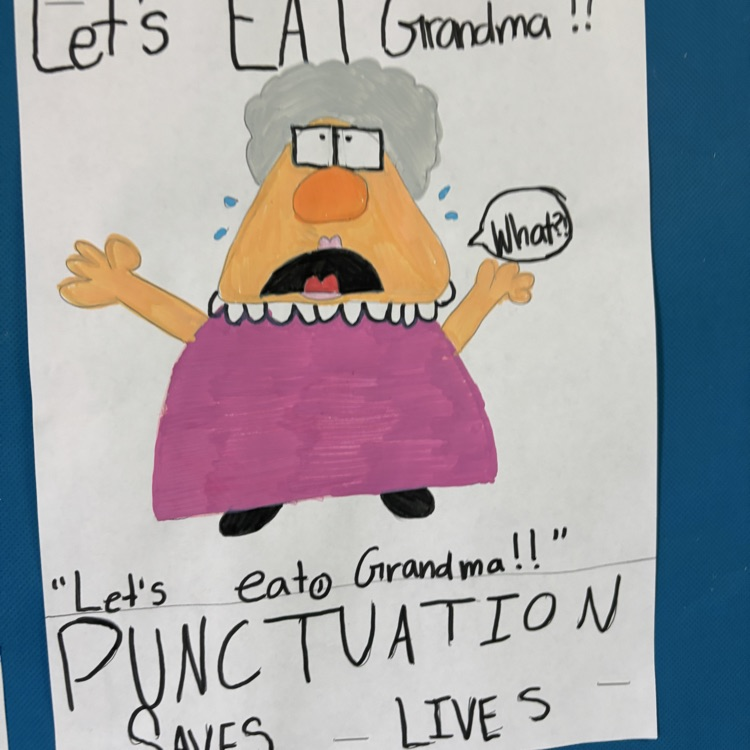 Let's EAT Grandma!!
What?!
"Let's eat, Grandma!!"
PUNCTUATION
SAVES - LIVES -